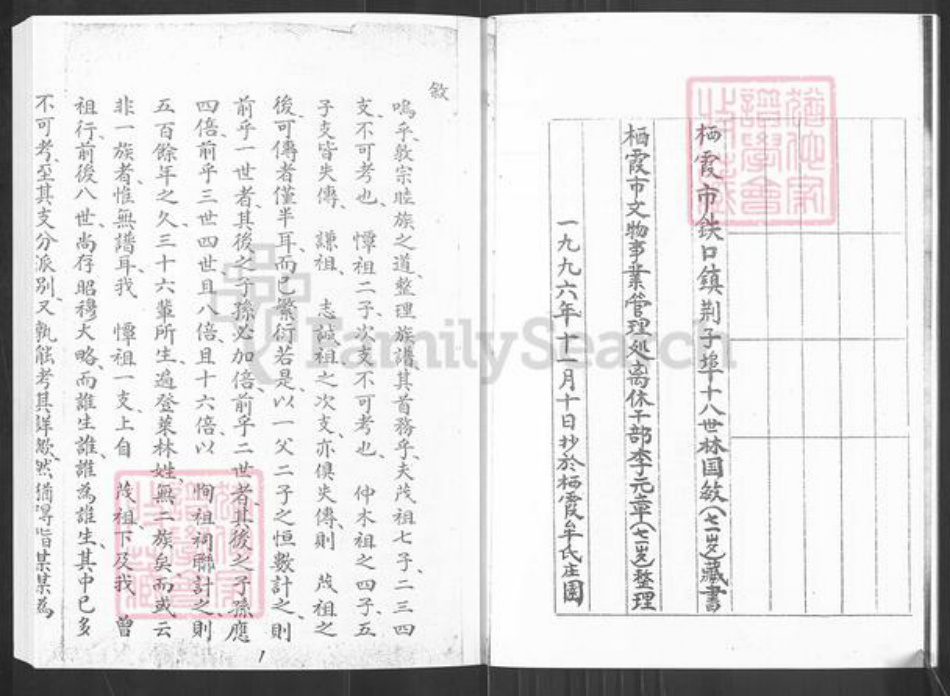 栖霞市鉄口鎮荆子埠十八世林国敏(七一岁)藏書
栖霞市文物事業管理处离休干部李元章(七一岁)整理
一九九六年十一月十日抄於栖霞牟氏庄園
敘
嗚乎敦宗睦族之道整理族譜其首務乎夫茂祖七子二三四
支不可考也 憛祖二子次支不可考也 仲木祖之四子五
子支皆失傳 謙祖 志誠祖之次支亦俱失傳則 茂祖之
後可傳者僅半耳而已繁衍若是以一父二子之恒數計之則
前乎一世者其後之子孫必加倍前乎二世者其後之子孫應
四倍前乎三世四世且八倍且十六倍以 恂祖祠聯計之則
五百餘年之久三十六輩所生遍登萊林姓無二族矣而或云
非一族者惟無譜耳我 憛祖一支上自 茂祖下及我 曾
祖行前後八世尚存昭穆大略而誰生誰誰為誰生其中已多
不可考至其支分派別又孰能考其詳歟然猶得指某某為
1
FamilySearch